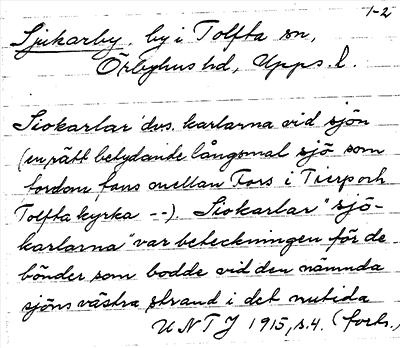 1-2
Sjukarby, by i Tolfta sn,
Örbyhus hd, Upps. l.
Siokarlar dvs. karlarna vid sjön
(en rätt betydande långsmal sjö som
fordom fans mellan Fors i Tierp och
Tolfta kyrka --). Siokarlar "sjö-
karlarna" var beteckningen för de
bönder som bodde vid den nämnda
sjöns västra strand i det nutida
UNTJ 1915, s. 4. (forts.)